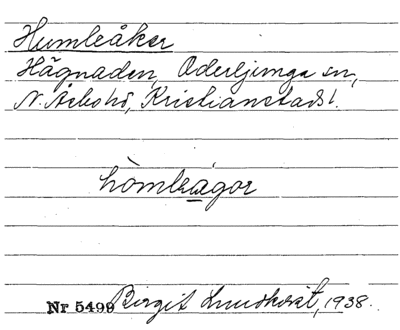 Humleåker
Hägnaden, Oderljunga sn,
N. Åsbo hd, Kristianstads l.
hòmleágor
Nr 5499 Birgit Lundkvist, 1938.